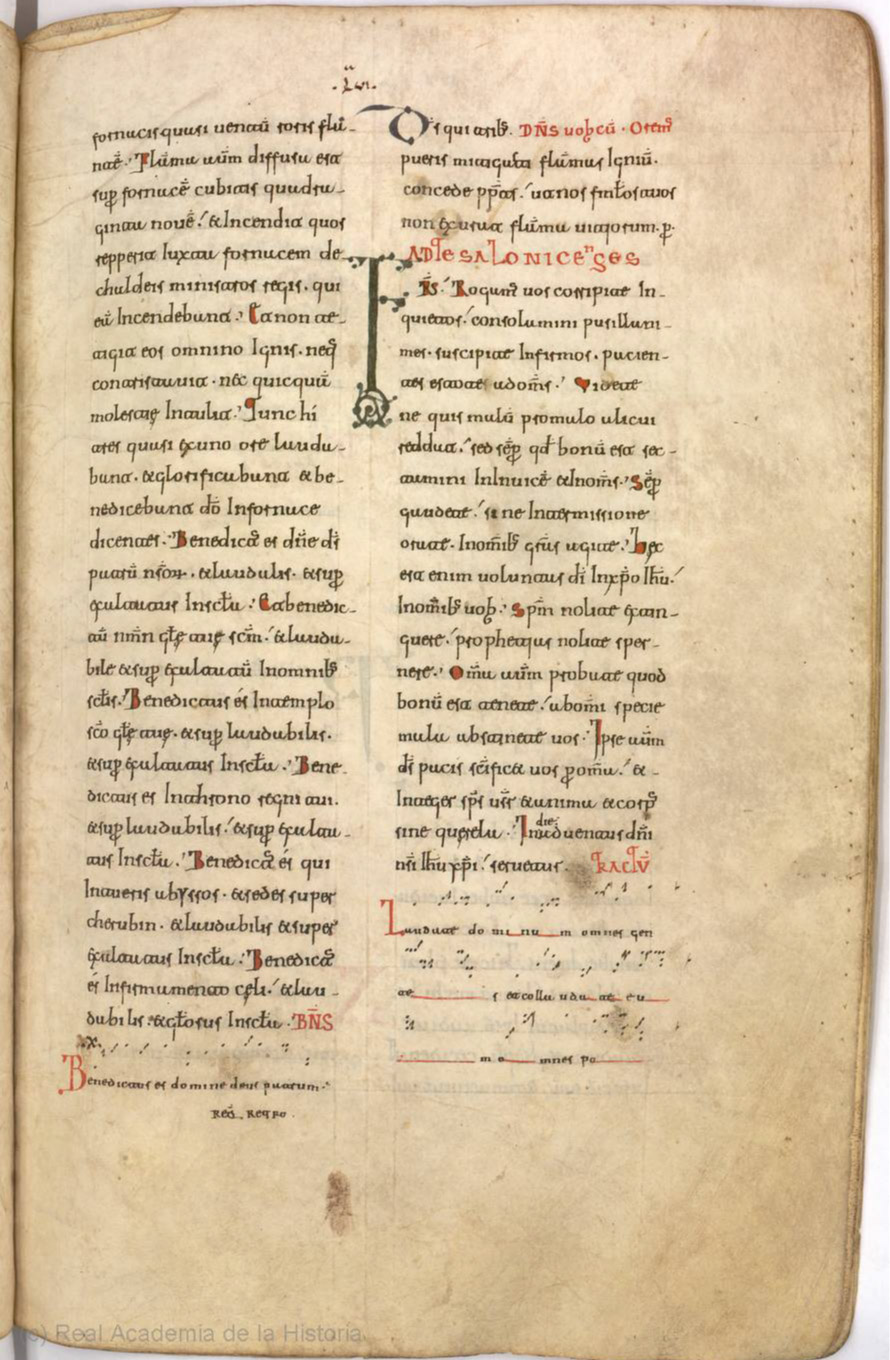 .Lvi.
fornacis quasi uentū roris flā-
tē. Flāma aūm diffusa est
sup̄ fornacē cubitis quadra-
ginta nouē. & Incendit quos
repperit Iuxta fornacem de
chaldeis ministros regis. qui
eū Incendebant. Et non te-
tigit eos omnino Ignis. neq̄
contristauit. nēc quicquā
molestię Intulit. Tunc hi
tres quasi ęx uno ore lauda-
bant. & glorificabant & be-
nedicebant dō In fornace
dicentes. Benedict̄ es dn̄e ds̄
patrū nsōr. & laudabilis. & sup̄
ęxaltatus In sclā. Et benedic-
tū nm̄n glę̄ tuę scm̄. & lauda-
bile & sup̄ ęxaltatū In omnib̄
sclīs. Benedictus és In templo
scō glę̄ tuę. & sup̄ laudabilis.
& sup̄ ęxaltatus In sclā. Bene-
dictus es In throno regni tui.
& sup̄ laudabilis. & sup̄ ęxalta-
tus In sclā. Benedict̄ és qui
Intueris abyssos. & sedes super
cherubin. & laudabilis & super
ęxaltatus In sclā. Benedict̄
és In firmamento cęli. & lau-
dabilis & glōsus In sclā. BN̄S
Benedictus es domine deus patrum.
Req̄. Retro.
Ds̄ qui trib̄. DN̄S uobcū. Orem̄
pueris mitigasti flāmas Igniū.
concede pp̄tas. ut nos fmlōs tuos
non ęxurat flāma uitiorum. p̄.
AD TESALONICENSES
FRS̄. Rogam̄ uos corripite In-
quietos. consolamini pusillani-
mes. suscipite Infirmos. patien-
tes estote ad om̄s. Videte
ne quis malū pro malo alicui
reddat. sed sēp̄ qd̄ bonū est sec-
tamini In Inuicē & In om̄s. Sēp̄
gaudete. sine Intermissione
orate. In om̄ib̄ grās agite. hęc
est enim uoluntas dī In xp̄o Ihū.
In om̄ib̄ uob̄. Spm̄ nolite ęxtin-
guere. prophetias nolite sper-
nere. Om̄a aūm probate quod
bonū est tenete. ab om̄i specie
mala abstinete uos. Ipse aūm
ds̄ pacis scīficet uos p̄ om̄a. & -
Integer sps̄ usr̄ & anima & corp̄
sine querela. In die aduentus dn̄i
nsī Ihū xp̄i. seruetur. TRACTŪ
Laudate do mi nu m omnes gen
te s et collaudate eu
m o mnes po
(c) Real Academia de la Historia